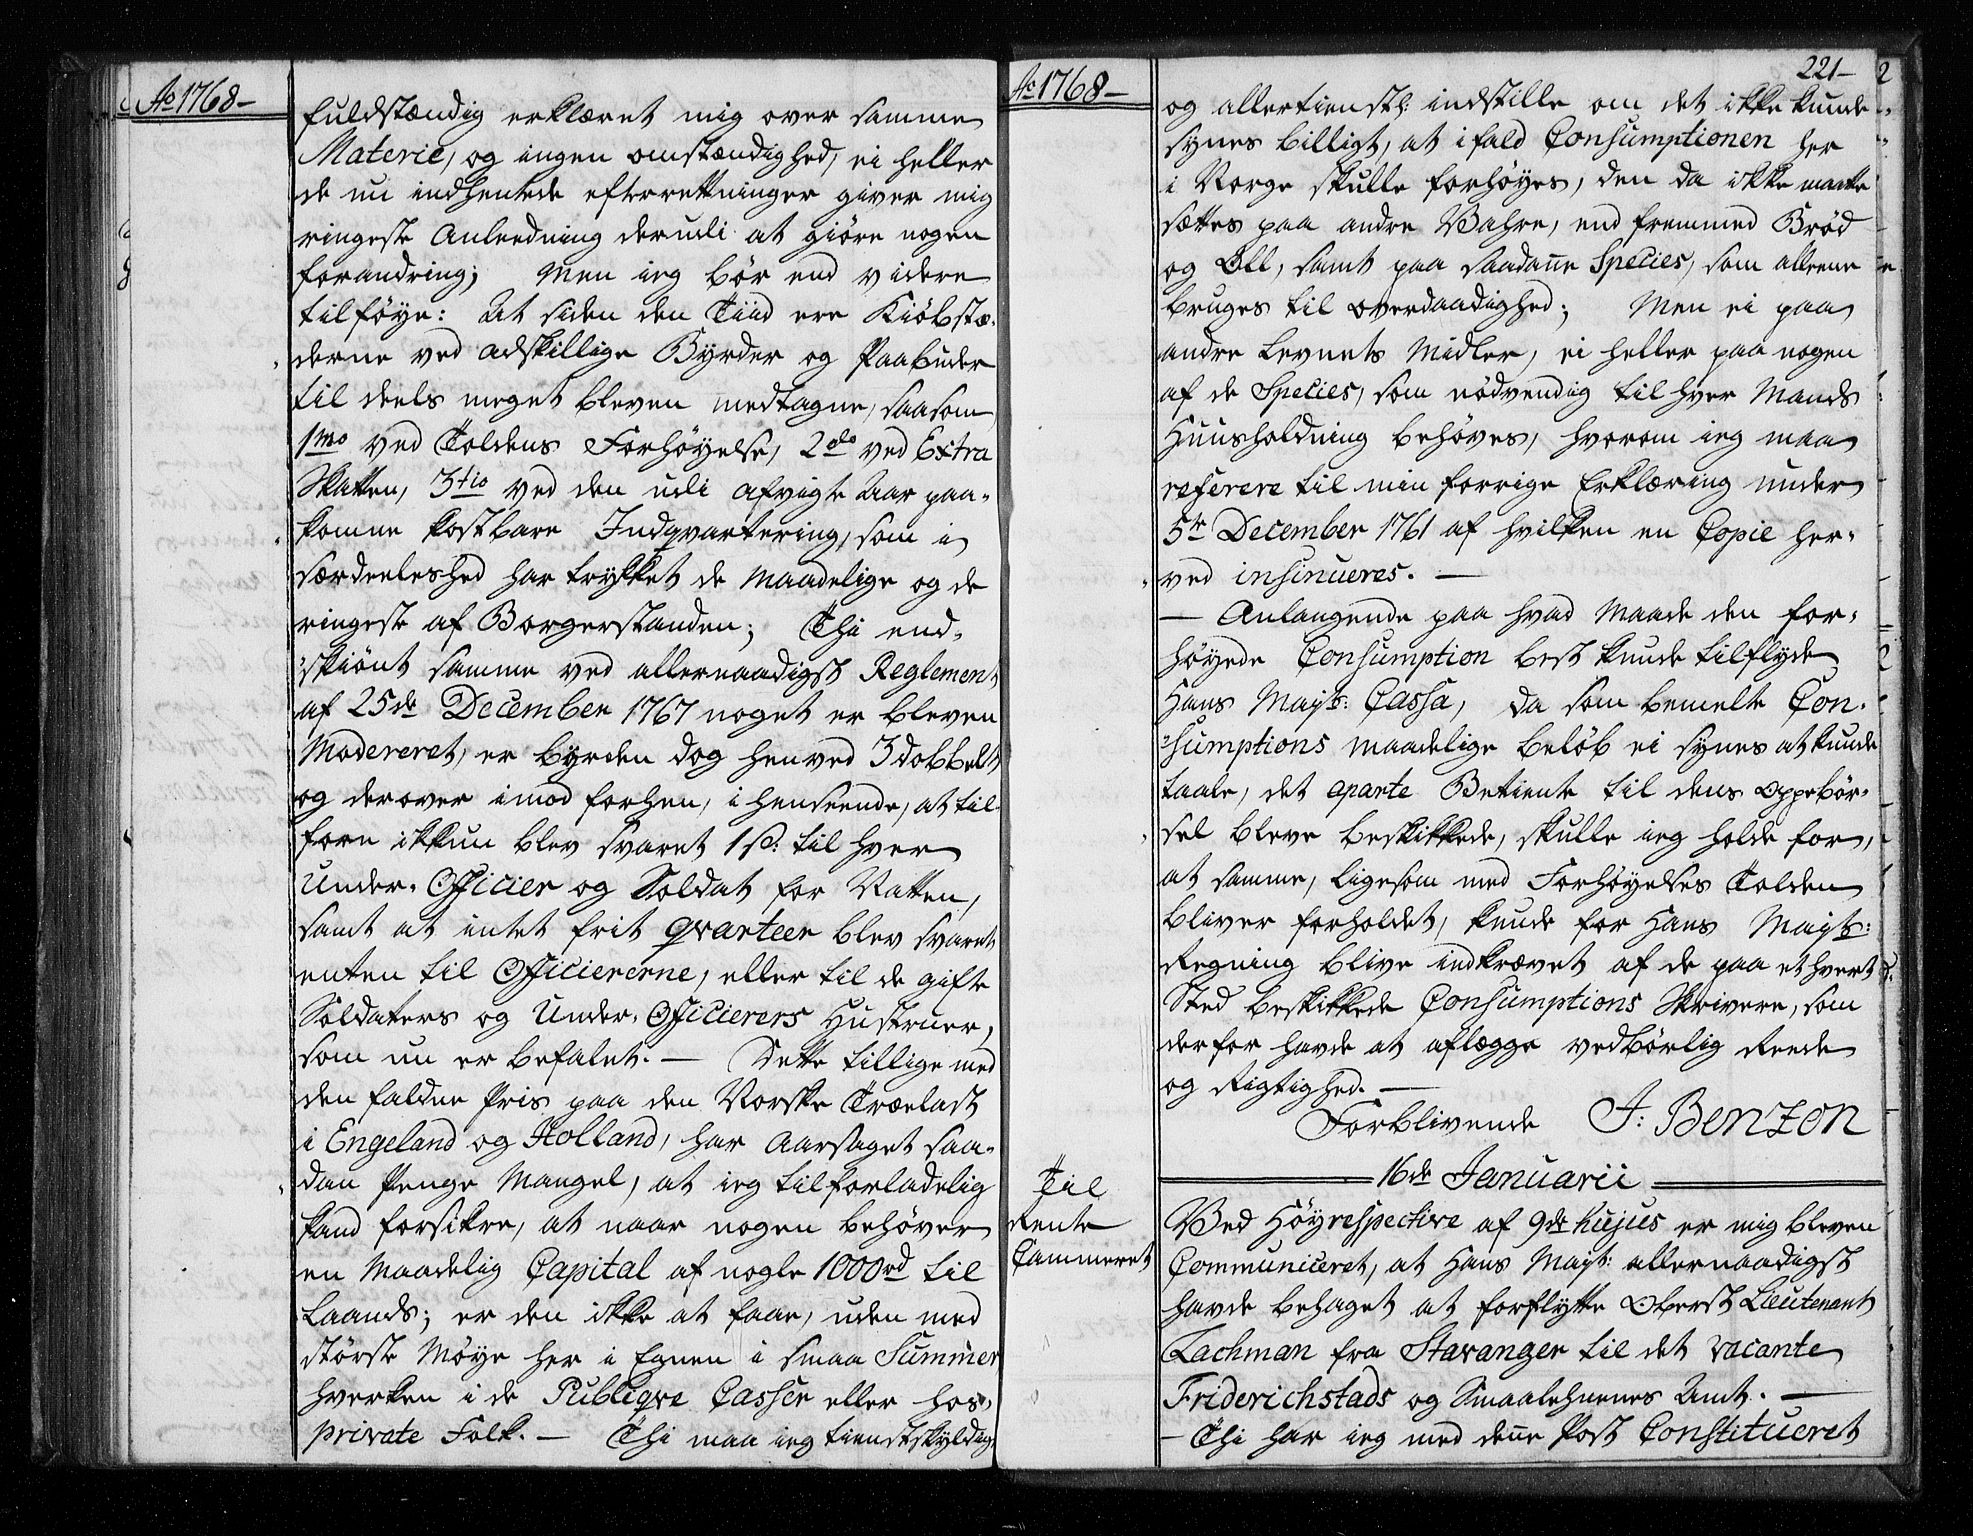 Ao 1768-
fuldstændig erklæret mig over samme
Materie, og ingen omstændighed, ei heller
de nu indhentede efterretninger giver mig
ringeste Anleedning derudi at giöre nogen
forandring; Men ieg bör end videre
tilföye: At siden den Tiid ere Kiöbstæ-
derne ved adskillige Byrder og Paabuder
til deels meget bleven medtagne, saasom
1mo ved Toldens Forhöyelse, 2do ved Extra
Skatten, 3tio ved den udi afvigte Aar paa-
komne kostbare Indqvartering, som i
særdeeleshed har trykket de Maadelige og de
ringeste af Borgerstanden; Thi end-
skiönt samme ved allernaadigst Reglement
af 25de December 1767 noget er bleven
Modereret, er byrden dog henved 3 dobbelt
og derover imod forhen, i henseende, at til-
forn ikkun blev svaret 1 s: til hver
Under-Officier og Soldat for Natten,
samt at intet frit qvarteer blev svaret
enten til Officiererne, eller til de gifte
Soldaters og Under-Officierers Hustruer,
som nu er befalet. — Dette tillige med
den faldne Pris paa den Norske Trælast
i Engeland og Holland, har aarsaget saa-
dan Penge Mangel, at ieg tilforladelig
kand forsikre, at naar nogen behöver
en Maadelig Capital af nogle 1000 rd til
Laands; er den ikke at faae, uden med
störste Möye her i Egnen i smaa Summer
hverken i de Publiqve Casser eller hos
private Folk. — Thi maa ieg tienstskyldigst
Ao 1768-
221-
og allertienstl: indstille om det ikke kunde
synes billigt, at ifald Consumptionen her
i Norge skulle forhöyes, den da ikke maatte
sættes paa andre Vahre, end fremmed Bröd
og Öll, samt paa saadanne Species, som alleene
bruges til overdaadighed; Men ei paa
andre Levnets Midler, ei heller paa nogen
af de Species, som nödvendig til hver Mands
Huusholdning behöves, hvorom ieg maa
referere til min forrige Erklæring under
5te December 1761 af hvilken en Copie her-
ved insinueres. —
— Anlangende paa hvad Maade den for-
höyede Consumption best kunde tilflyde
Hans Mayts: Cassa, da som bemelte Con-
sumptions maadelige belöb ei synes at kunde
taale, det aparte Betiente til dens oppebör-
sel bleve beskikkede, skulle ieg holde for,
at samme, ligesom med Forhöyelses Tolden
bliver forholdet, kunde for Hans Mayts:
Regning blive indkrævet af de paa ethvert
Sted beskikkede Consumptions Skrivere, som
derfor havde at aflægge vedbörlig Reede
og Rigtighed. —
Forblivende J: Benzon
16de Januarii
Til
Rente
Cammeret
Ved Höyrespective af 9de hujus er mig bleven
Communiceret, at Hans Mayt: allernaadigst
havde behaget at forflytte Oberst Lieutenant
Lachman fra Stavanger til det vacante
Friderichstads og Smaalehnenes Amt. —
— Thi har ieg med denne Post Constitueret